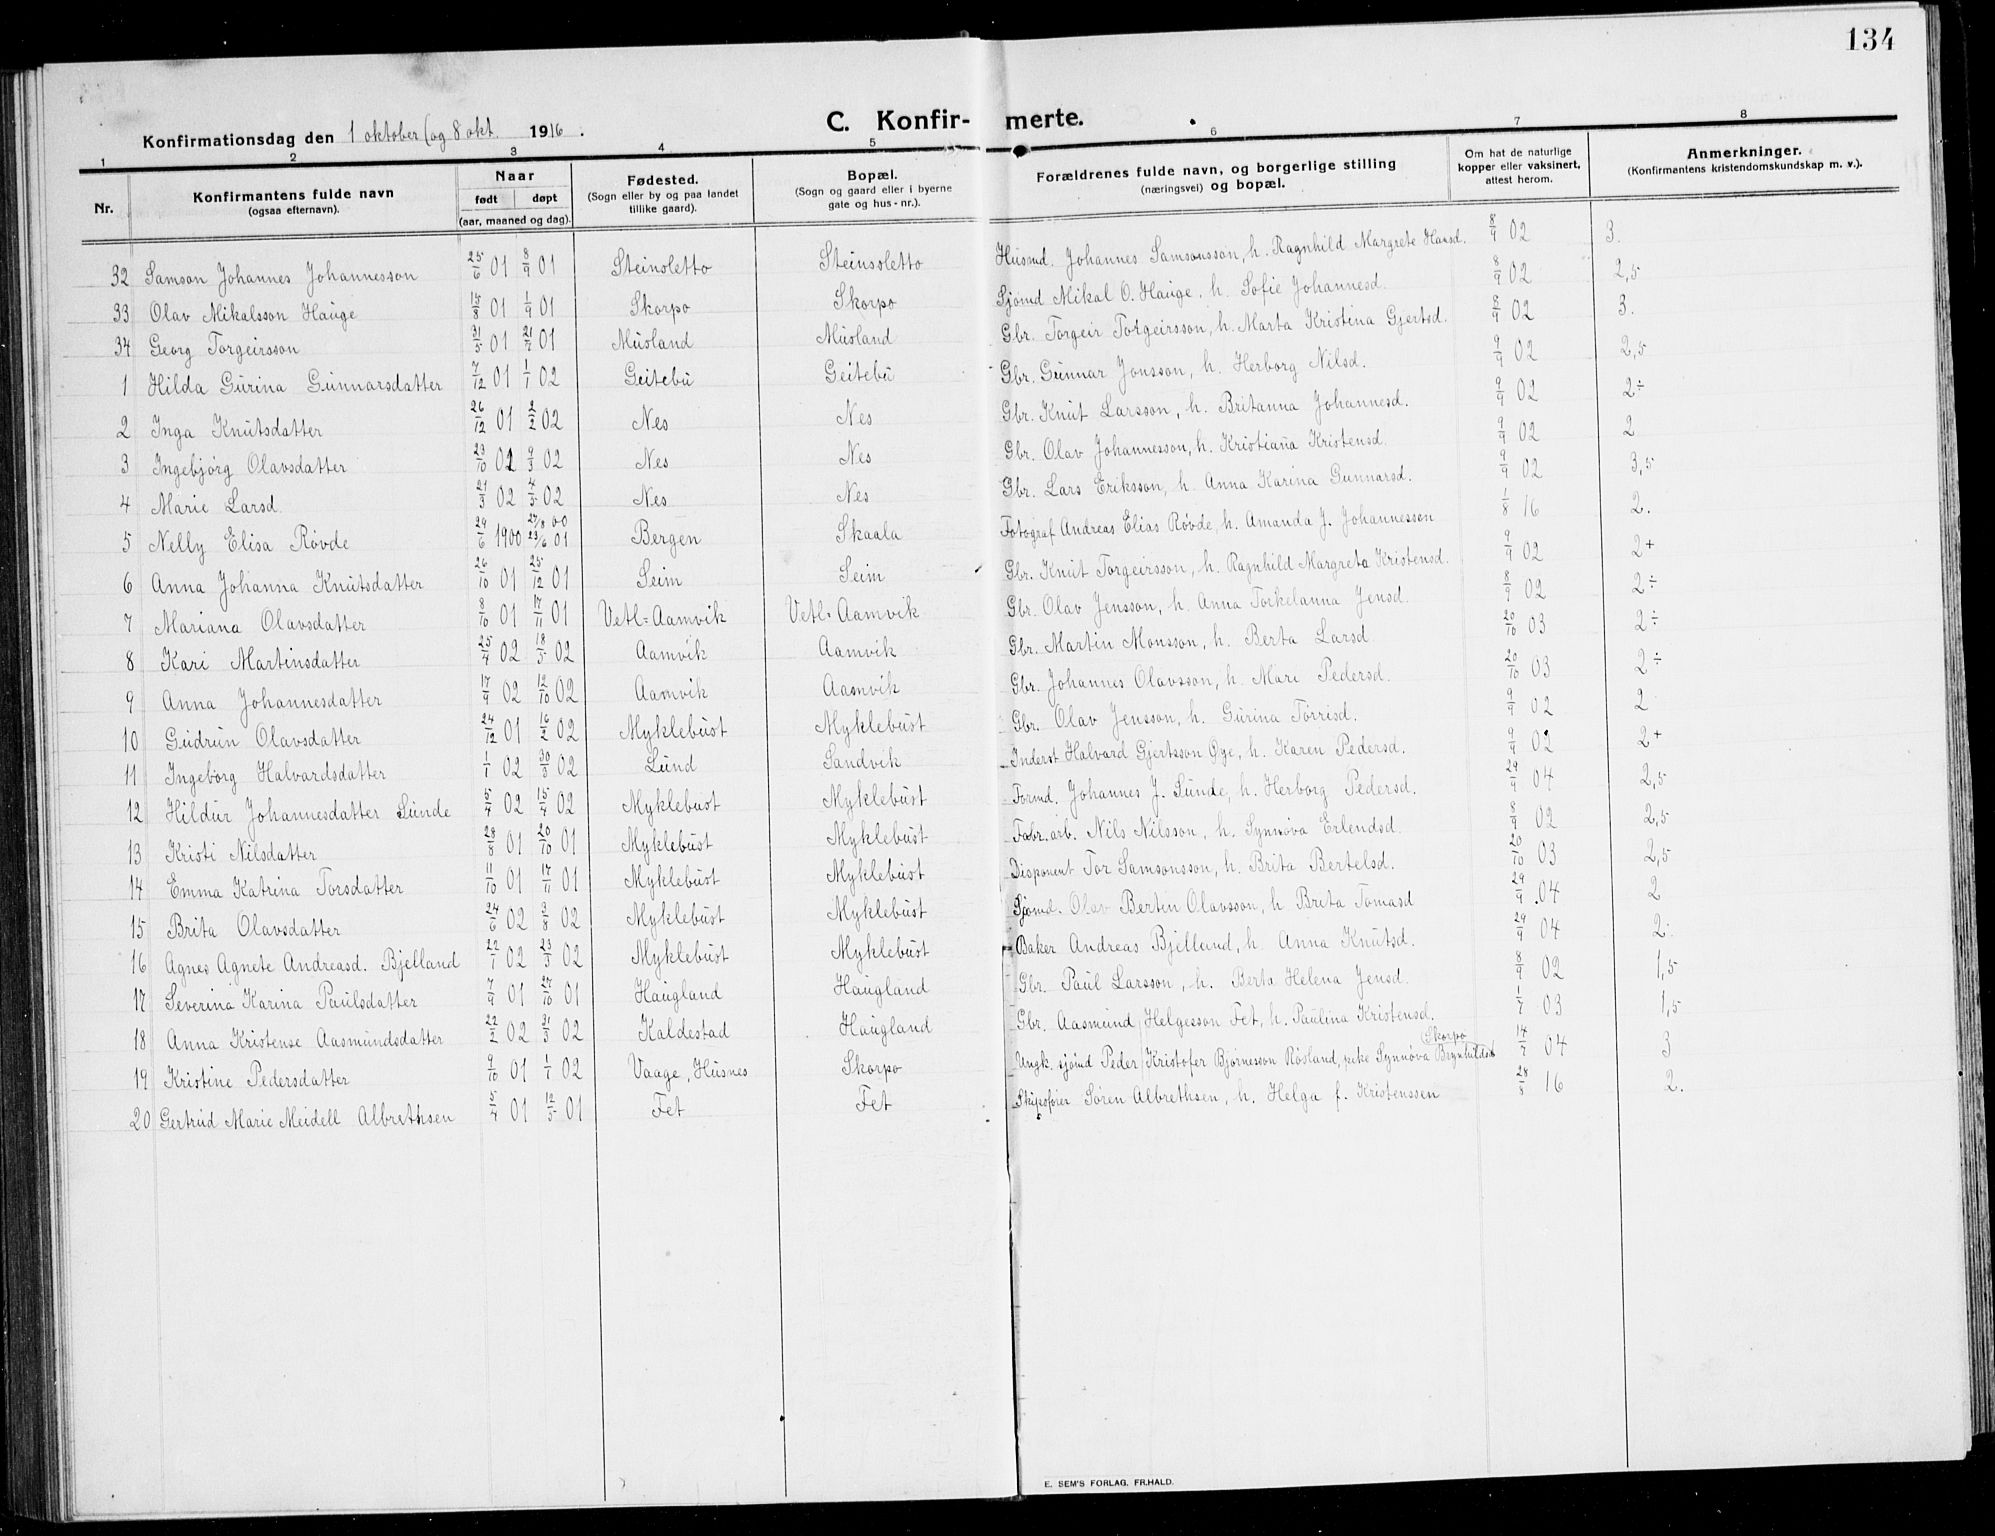 134
Konfirmationsdag den 1 oktober (og 8 okt. 1916.
C. Konfir- merte.
1 2 3 4 5 6 7 8
Nr.
Konfirmantens fulde navn
(ogsaa efternavn).
Naar
født døpt
(aar, maaned og dag).
Fødested.
(Sogn eller by og paa landet
tillike gaard).
Bopæl.
(Sogn og gaard eller i byerne
gate og hus-nr.).
Forældrenes fulde navn, og borgerlige stilling
(næringsvei) og bopæl.
Om hat de naturlige
kopper eller vaksinert,
attest herom.
Anmerkninger.
(Konfirmantens kristendomskundskap m. v.).
32 Samson Johannes Johannesson 25/6 01 8/9 01 Steinsletto Steinsoletto Husmd. Johannes Samsonsson, h. Ragnhild Margrete Hansd. 8/9 02 3.
33 Olav Mikalsson Hauge 15/8 01 1/9 01 Skorpo Skorpo Sjømd Mikal O. Hauge, h. Sofie Johannesd. 8/9 02 2,5
34 Georg Torgeirsson 31/5 01 21/7 01 Musland Musland Gbr. Torgeir Torgeirsson, h. Marta Kristina Gjertsd. 8/9 02 3.
1 Hilda Gurina Gunnarsdatter 7/12 01 1/1 02 Geitebu Geitebu Gbr. Gunnar Jonsson, h. Herborg Nilsd. 9/9 02 2,5
2 Inga Knutsdatter 26/12 01 2/2 02 Nes Nes Gbr. Knut Larsson, h. Britanna Johannesd. 9/9 02 2÷
3 Ingebjørg Olavsdatter 23/10 01 9/3 02 Nes Nes Gbr. Olav Johannesson, h. Kristiana Kristensd. 9/9 02 2
4 Marie Larsd. 21/3 02 4/5 02 Nes Nes Gbr. Lars Eriksson, h. Anna Karina Gunnarsd. 9/9 02 3,5
5 Nelly Elisa Røvde 29/6 1900 27/8 00 23/6 01 Bergen Skaala Fotograf Andreas Elias Røvde, h. Amanda J. Johannessen 1/8 16 2.
6 Anna Johanna Knutsdatter 26/10 01 25/12 01 Seim Seim Gbr. Knut Torgeirsson, h. Ragnhild Margreta Kristensd. 9/9 02 2+
7 Mariana Olavsdatter 8/10 01 17/11 01 Vetl=Aamvik Vetl=Aamvik Gbr. Olav Jensson, h. Anna Torkelanna Jensd. 8/9 02 2÷
8 Kari Martinsdatter 25/4 02 18/5 02 Aamvik Aamvik Gbr. Martin Monsson, h. Berta Larsd. 20/10 03 2÷
9 Anna Johannesdatter 17/9 02 12/10 02 Aamvik Aamvik Gbr. Johannes Olavsson, h. Mari Pedersd. 20/10 03 2÷
10 Gudrun Olavsdatter 24/12 01 16/2 02 Myklebust Myklebust Gbr. Olav Jensson, h. Gurina Torrisd. 9/9 02 2
11 Ingeborg Halvardsdatter 1/1 02 30/3 02 Lund Sandvik Inderst Halvard Gjertsson Øye, h. Karen Pedersd. 9/9 02 2+
12 Hildur Johannesdatter Sunde 5/4 02 15/4 02 Myklebust Myklebust Formd. Johannes J. Sunde, h. Herborg Pedersd. 29/9 04 2,5
13 Kristi Nilsdatter 28/8 01 20/10 01 Myklebust Myklebust Fabr.arb. Nils Nilsson, h. Synnøva Erlendsd. 8/9 02 2,5
14 Emma Katrina Torsdatter 11/10 01 17/11 01 Myklebust Myklebust Disponent Tor Samsonsson, h. Brita Bertelsd. 20/10 03 2,5
15 Brita Olavsdatter 24/6 02 3/8 02 Myklebust Myklebust Sjømd. Olav Berten Olavsson, h Brita Tomasd 29/9 04 2
16 Agnes Agnete Andreasd. Bjelland 22/1 02 23/3 02 Myklebust Myklebust Baker Andreas Bjelland, h. Anna Knutsd. 29/9 04 2.
17 Severina Karina Paulsdatter 7/9 01 27/10 01 Haugland Haugland Gbr. Paul Larsson, h. Berta Helena Jensd. 8/9 02 1,5
18 Anna Kristense Aasmundsdatter 22/2 02 31/3 02 Kaldestad Haugland Gbr. Aasmund Helgesson Fet, h. Paulina Kristensd. 1/7 03 1,5
19 Kristine Pedersdatter 9/10 01 1/1 02 Vaage, Husnes Skorpo Ungk. sjømd Peder Kristofer Bjørnesson Røsland, pike Synnøva Brynhildsd. Skorpo 14/7 04 3
20 Gertrud Marie Meidell Albrethsen 5/4 01 12/5 01 Fet Fet Skipsfører Søren Albrethsen, h. Helga f. Kristenssen 28/8 16 2.
E. SEM'S FORLAG. FR.HALD.